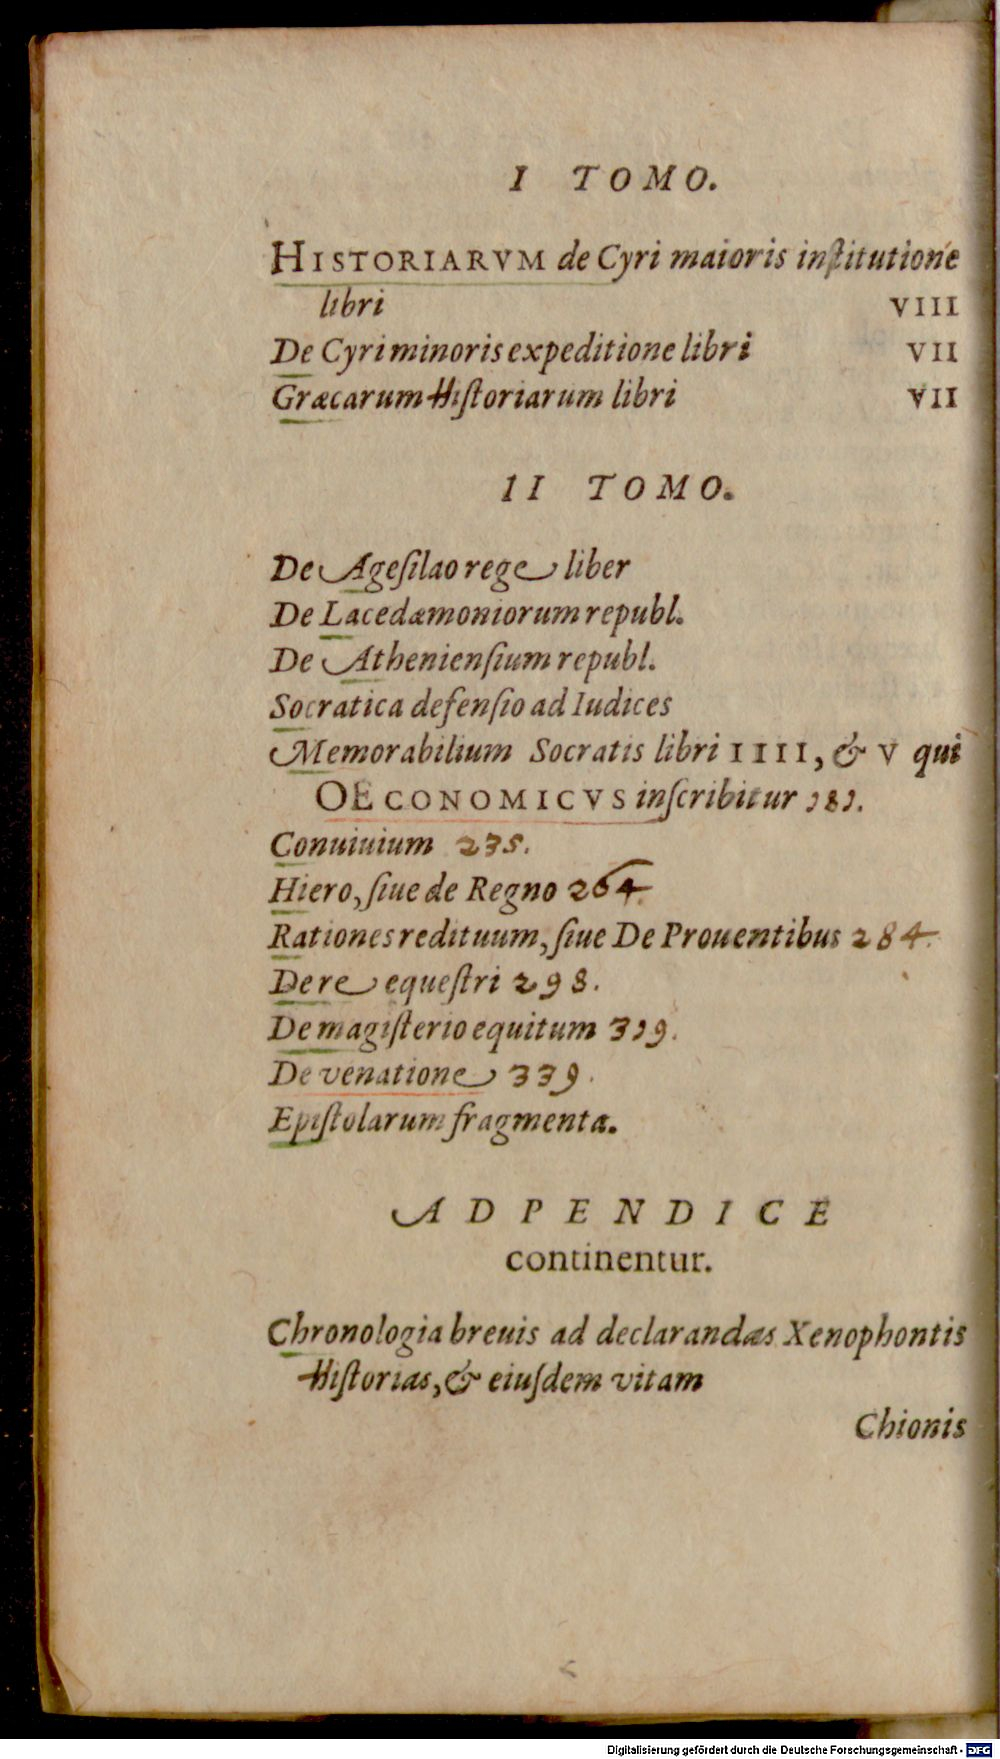 I TOMO.
HISTORIARVM de Cyri maioris inſtitutione
libri VIII
De Cyri minoris expeditione libri VII
Græcarum Hiſtoriarum libri VII
II TOMO.
De Ageſilao rege liber
De Lacedæmoniorum republ.
De Athenienſium republ.
Socratica defenſio ad Iudices
Memorabilium Socratis libri IIII, & V qui
OECONOMICVS inſcribitur 181.
Conuiuium 235.
Hiero, ſiue de Regno 264.
Rationes redituum, ſiue De Prouentibus 284.
De re equeſtri 298.
De magiſterio equitum 319.
De venatione 339.
Epiſtolarum fragmenta.
ADPENDICE
continentur.
Chronologia breuis ad declarandas Xenophontis
Hiſtorias, & eiuſdem vitam
Chionis
Digitalisierung gefördert durch die Deutsche Forschungsgemeinschaft - DFG